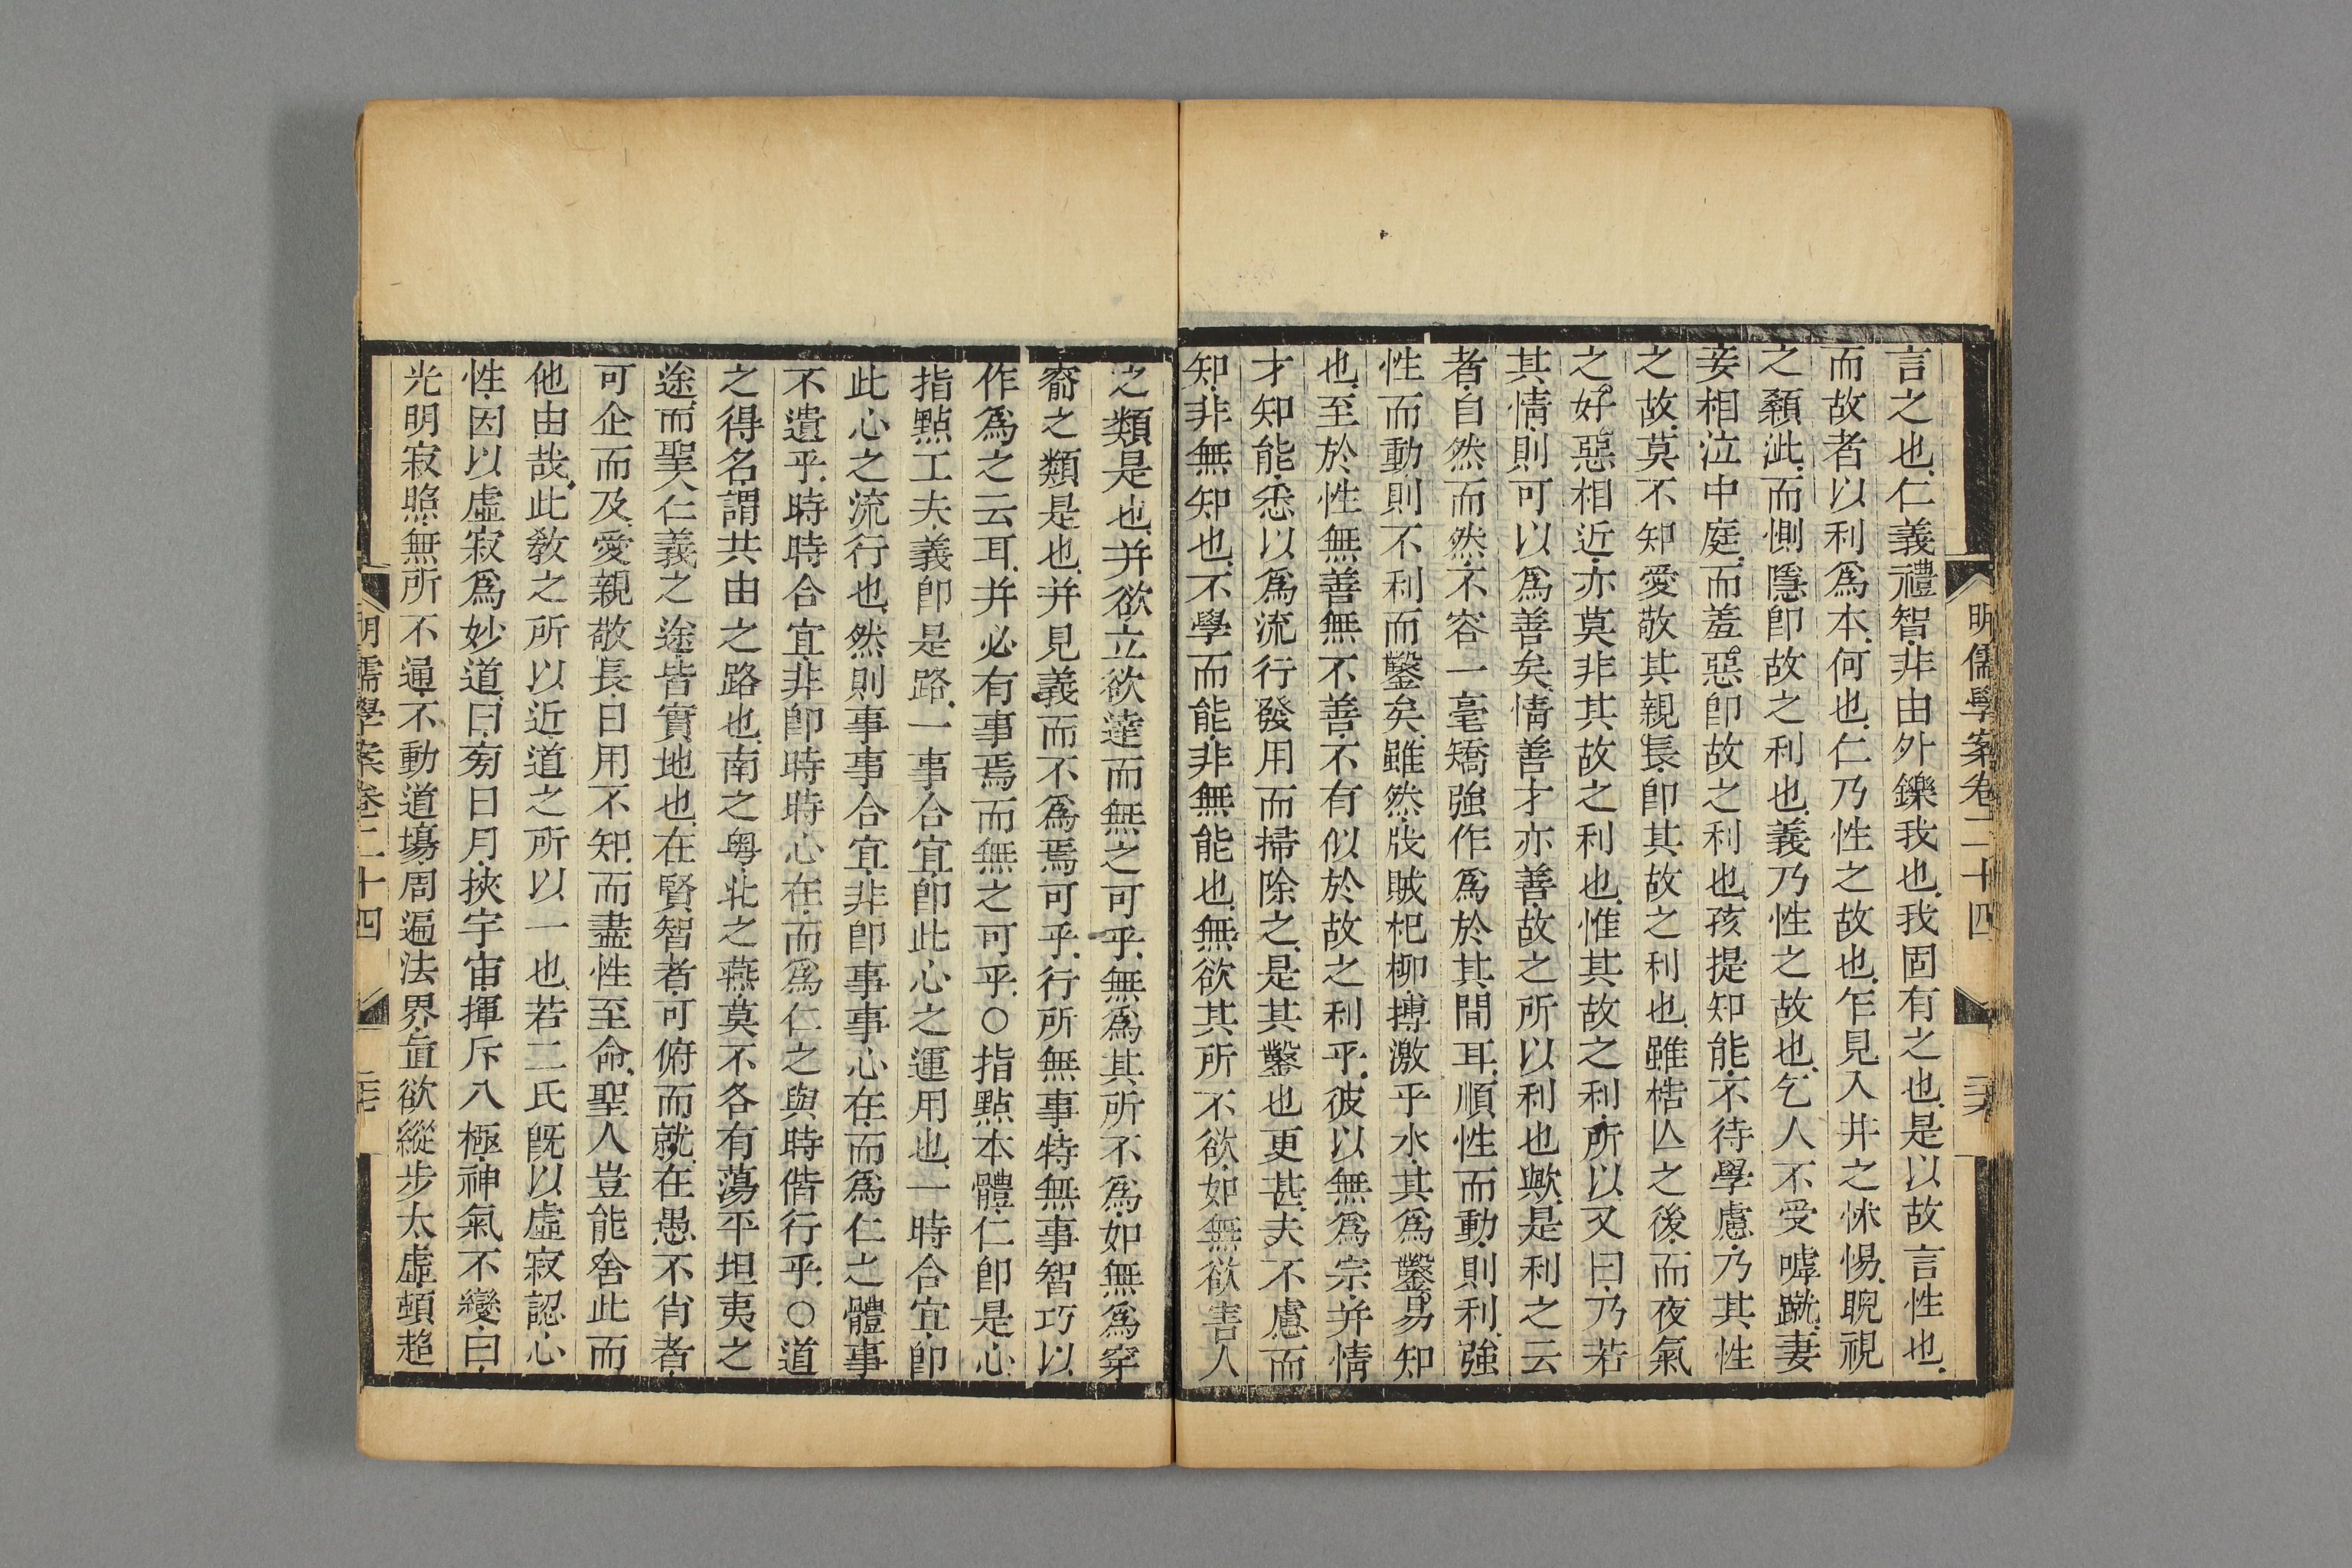 明儒學案卷二十四
言之也仁義禮智非由外鑠我也我固有之也是以故言性也
而故者以利爲本何也仁乃性之故也乍見入井之怵惕睨視
之顙泚而惻隱卽故之利也義乃性之故也乞人不受嘑蹴妻
妾相泣中庭而羞惡卽故之利也孩提知能不待學慮乃其性
之故莫不知愛敬其親長卽其故之利也雖梏亾之後而夜氣
之好惡相近亦莫非其故之利也惟其故之利所以又曰乃若
其情則可以爲善矣情善才亦善故之所以利也歟是利之云
者自然而然不容一毫矯強作爲於其間耳順性而動則利強
性而動則不利而鑿矣雖然戕賊杞柳搏激乎水其爲鑿易知
也至於性無善無不善不有似於故之利乎彼以無爲宗并情
才知能悉以爲流行發用而掃除之是其鑿也更甚夫不慮而
知非無知也不學而能非無能也無欲其所不欲如無欲害人
之類是也并欲立欲達而無之可乎無爲其所不爲如無爲穿
窬之類是也并見義而不爲焉可乎行所無事特無事智巧以
作爲之云耳并必有事焉而無之可乎○指點本體仁卽是心
指點工夫義卽是路一事合宜卽此心之運用也一時合宜卽
此心之流行也然則事事合宜非卽事事心在而爲仁之體事
不遺乎時時合宜非卽時時心在而爲仁之與時偕行乎○道
之得名謂共由之路也南之粤北之燕莫不各有蕩平坦夷之
途而聖人仁義之途皆實地也在賢智者可俯而就在愚不肖者
可企而及愛親敬長日用不知而盡性至命聖人豈能舍此而
他由哉此教之所以近道之所以一也若二氏旣以虛寂認心
性因以虛寂爲妙道曰旁日月挾宇宙揮斥八極神氣不變曰
光明寂照無所不通不動道塲周遍法界直欲縱步太虛頓超
明儒學案卷二十四